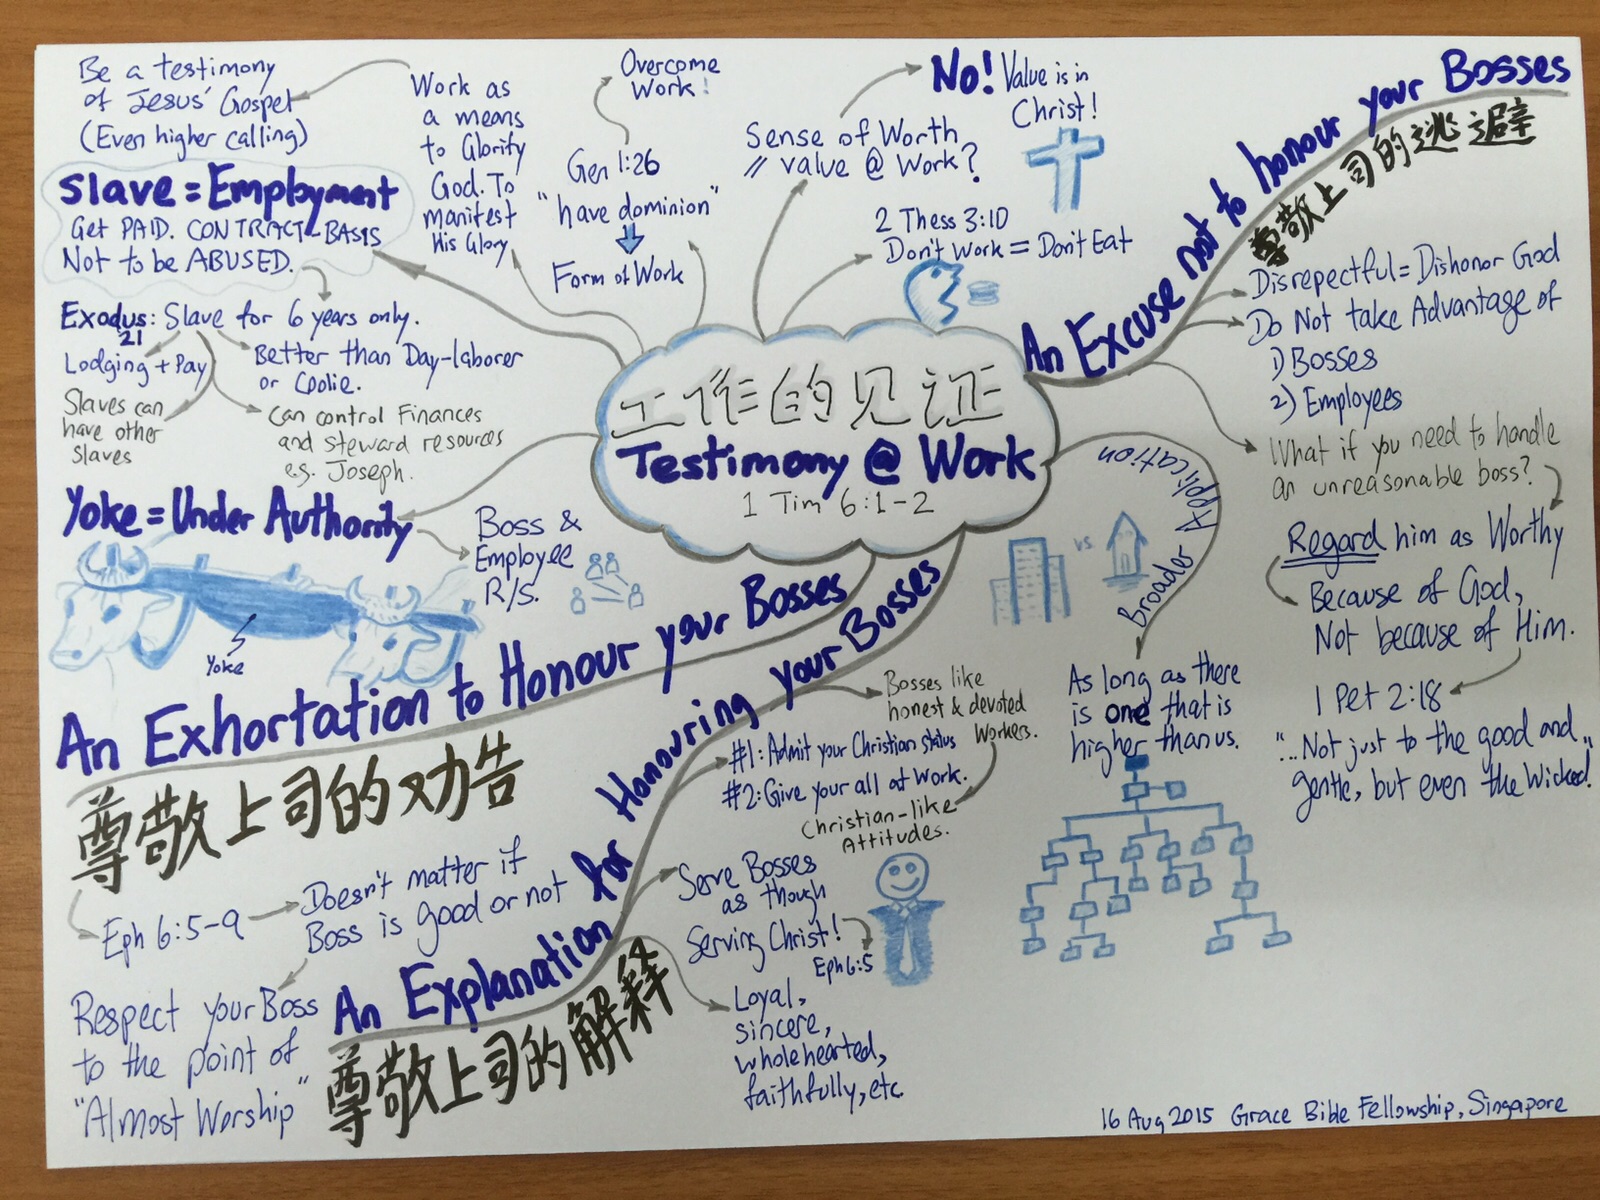 工作的见证
Testimony @ Work
1 Tim 6:1-2
Be a testimony
of Jesus' Gospel
(Even higher calling)
Work as
a means
to Glorify
God. To
manifest
His Glory
Overcome
Work!
Gen 1:26
"have dominion"
Form of Work
Sense of Worth
// value @ Work?
No! Value is in
Christ!
2 Thess 3:10
Don't Work = Don't Eat
Slave = Employment
Get PAID. CONTRACT-BASIS
Not to be ABUSED.
Exodus: Slave for 6 years only.
21
Lodging + Pay
Better than Day-laborer
or Coolie.
Slaves can
have other
slaves
Can control Finances
and steward resources
e.g. Joseph.
Yoke = Under Authority
Boss &
Employee
R/S.
Yoke
An Exhortation to Honour your Bosses
尊敬上司的劝告
Eph 6:5-9
Doesn't matter if
Boss is good or not
Respect your Boss
to the point of
"Almost Worship"
An Explanation for Honouring your Bosses
尊敬上司的解释
Bosses like
honest & devoted
Workers.
#1: Admit your Christian status
#2: Give your all at Work.
Christian-like
Attitudes.
Serve Bosses
as though
Serving Christ!
Eph 6:5
Loyal,
sincere,
wholehearted,
faithfully, etc
Broader Application
vs.
As long as there
is one that is
higher than us.
An Excuse not to honour your Bosses
尊敬上司的逃避
Disrepectful = Dishonor God
Do Not take Advantage of
1) Bosses
2) Employees
What if you need to handle
an unreasonable boss?
Regard him as Worthy
Because of God,
Not because of Him.
1 Pet 2:18
"...Not just to the good and
gentle, but even the Wicked."
16 Aug 2015 Grace Bible Fellowship, Singapore